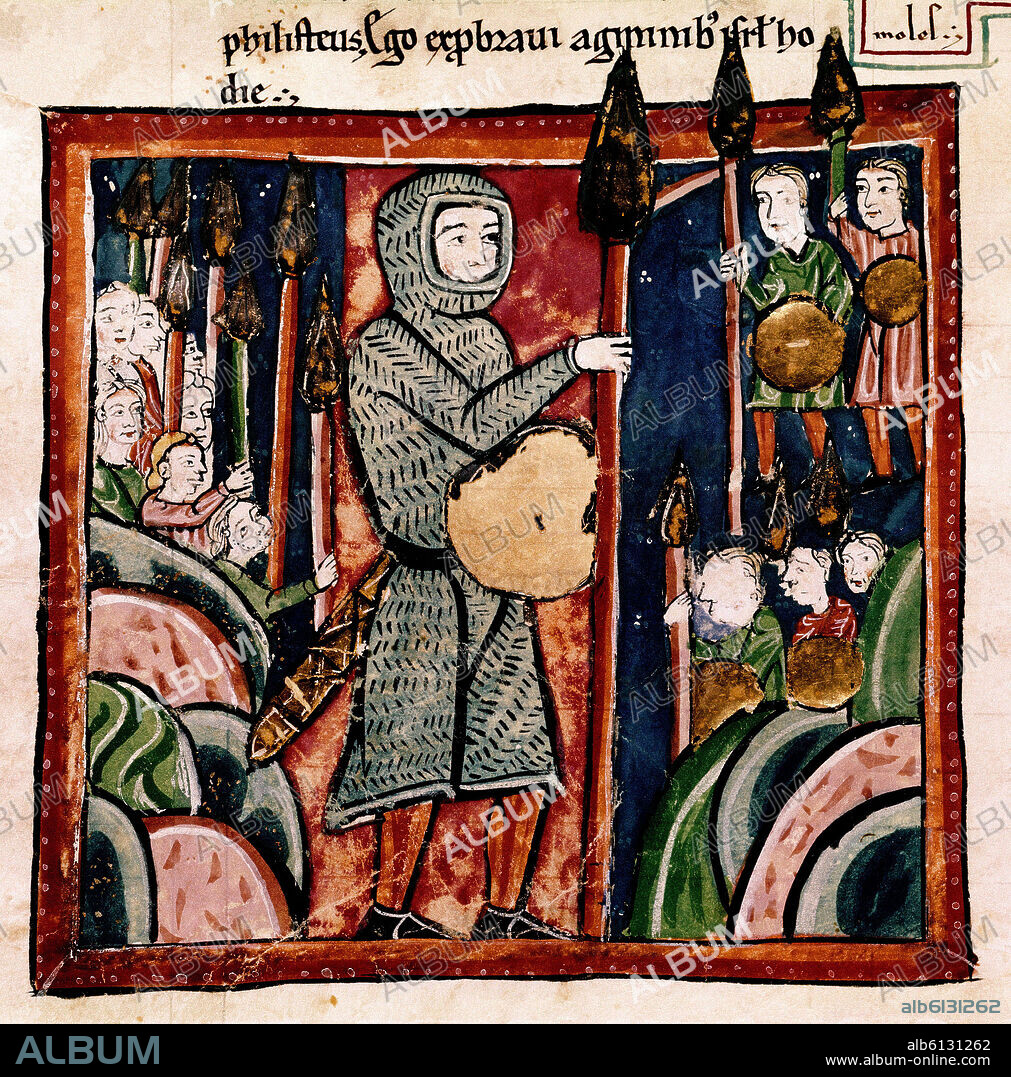 philisteus, Ego exprobraui agminib' isrl' ho
die
molol
ALBUM
alb6131262
ALBUM
alb6131262
www.album-online.com